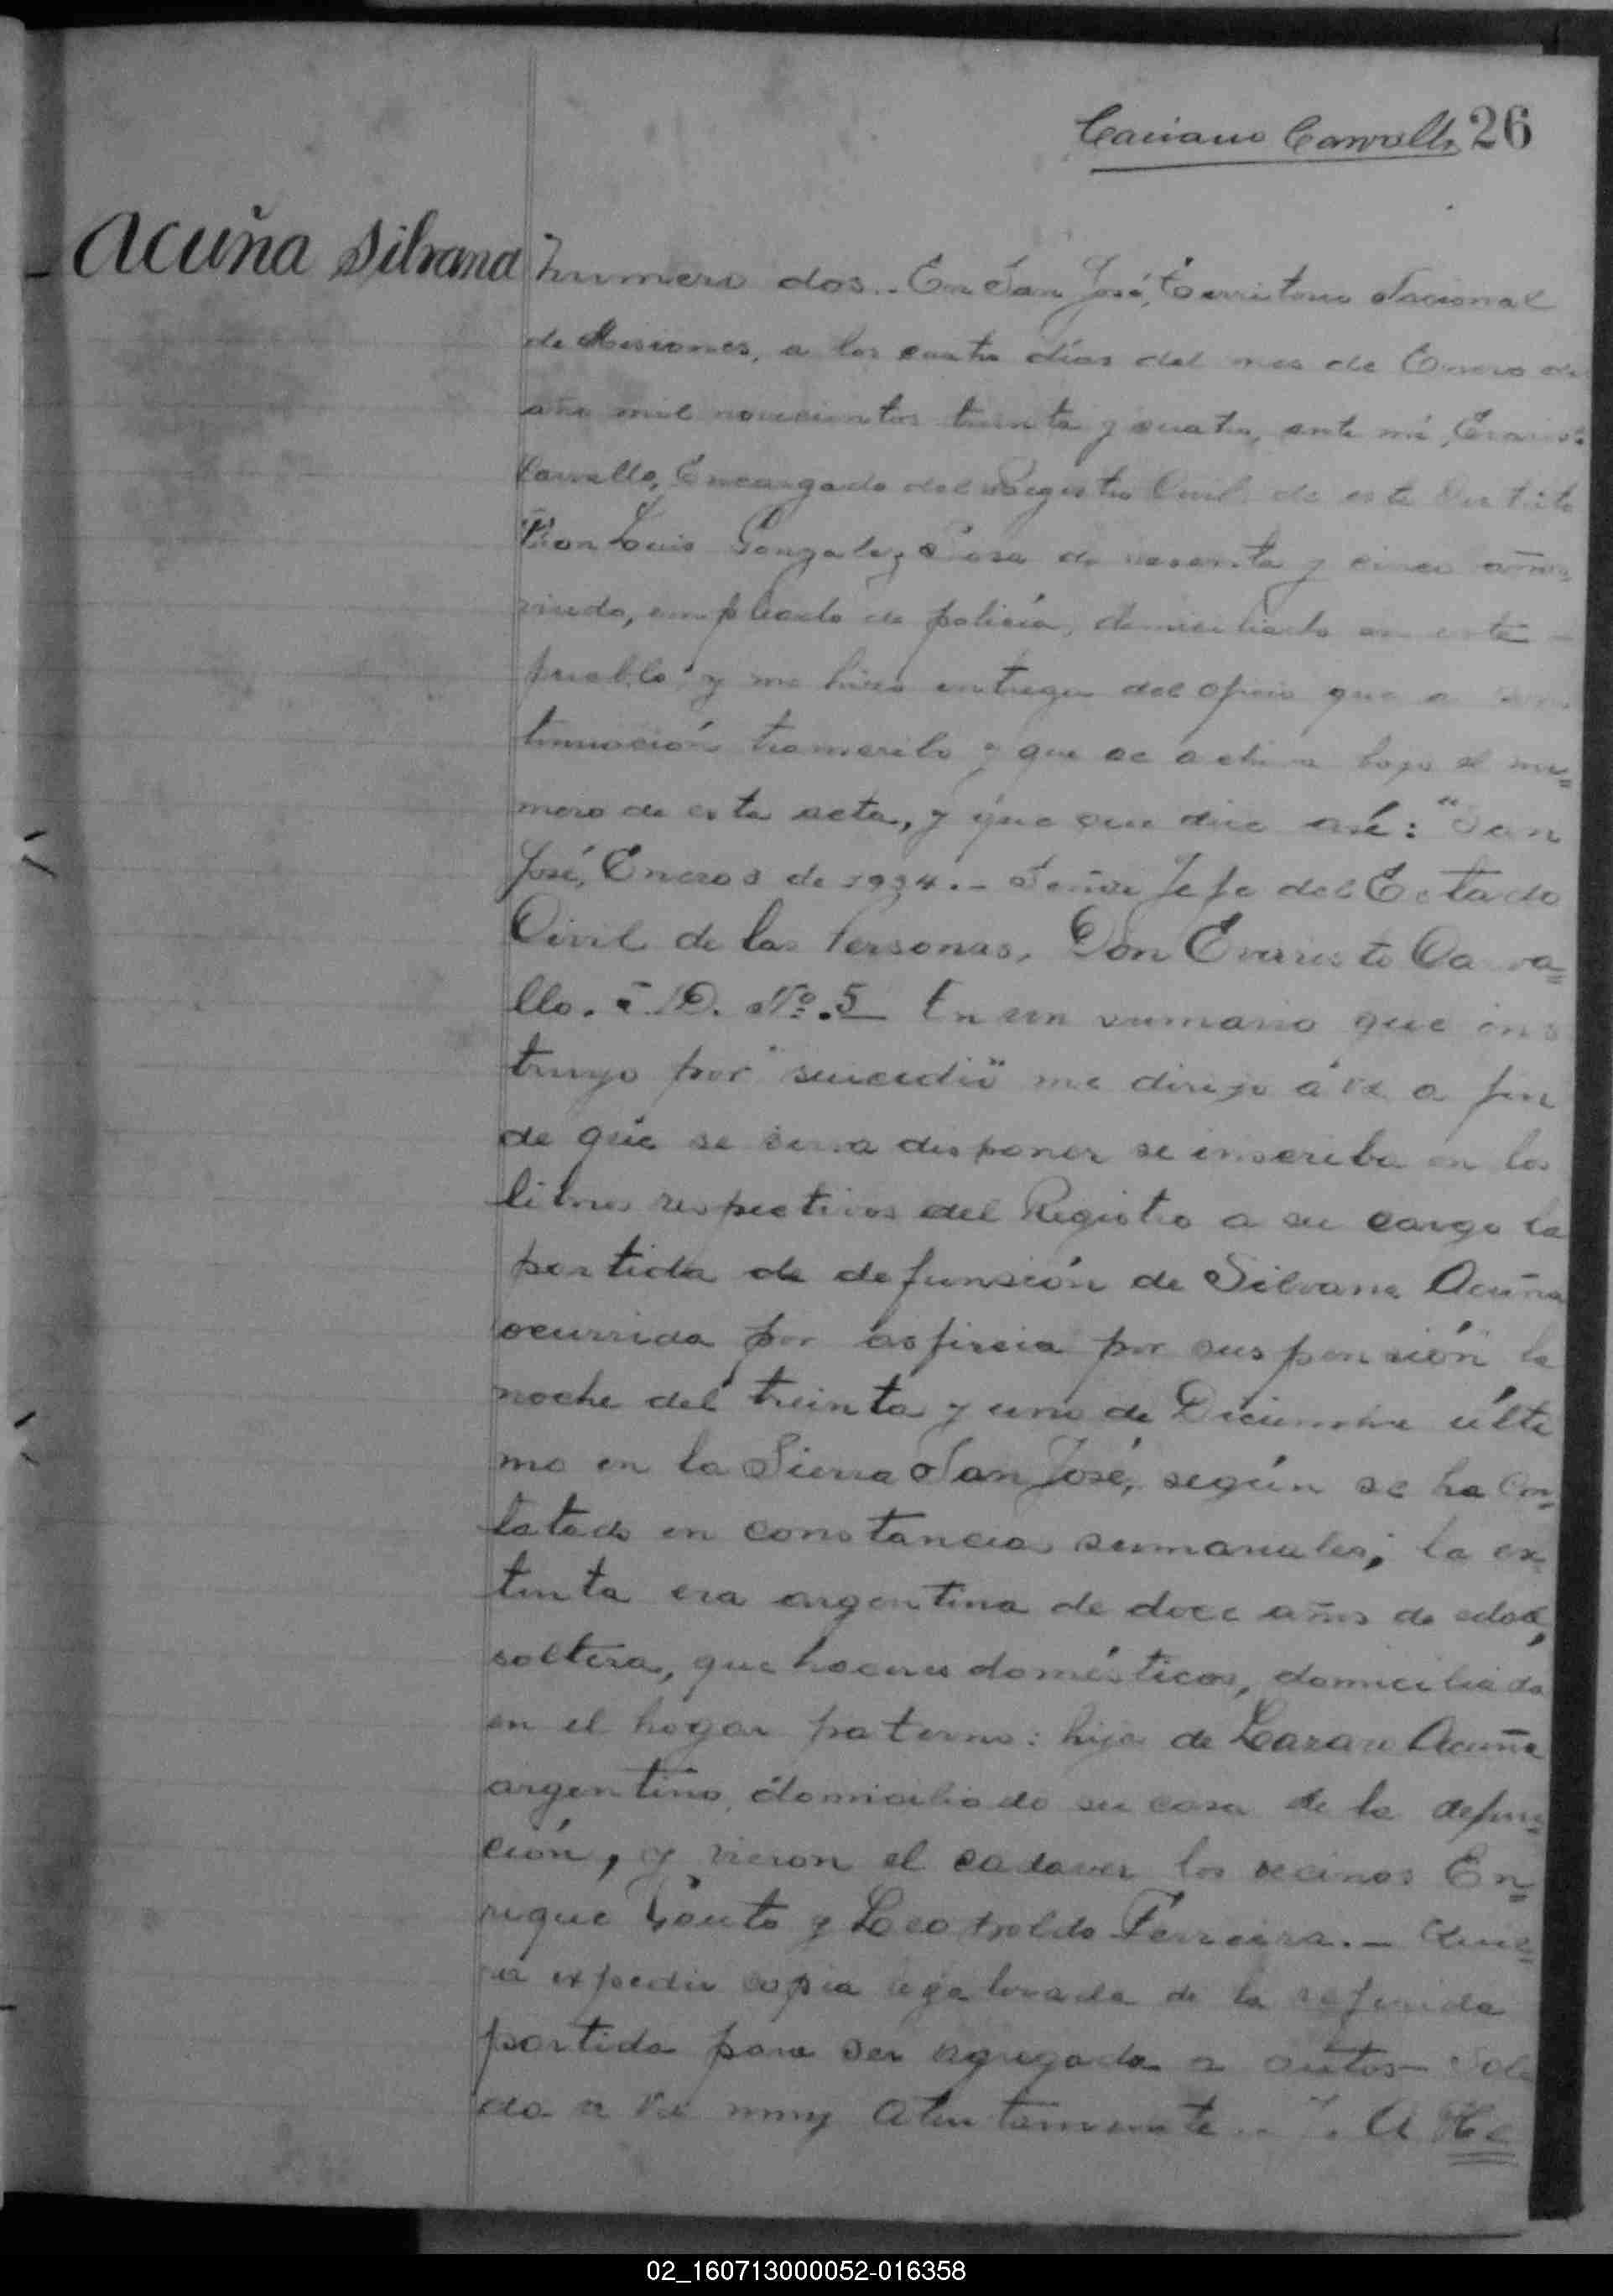 Carvallo 26
Acuña Silvana
Numero dos.. En San José, Territorio Nacional
de Misiones, a los cuatro días del mes de Enero de
año mil novecientos treinta y cuatro, ante mi,
Carvallo, Encargado del Registro Civil de este Distrito
Don Luis Gonzalez de y cinco años
viudo, empleado de policía, domiciliado en este -
pueblo y me hizo entrega del oficio que a con
tinuación transcribo y que se archiva bajo el nu=
mero de esta acta, y que dice así: "San
José, Enero 3 de 1934.- Señor Jefe del Estado
Civil de las Personas, Don Evaristo Carva=
llo. - D. Nº. 5 En un sumario que ins
truyo por "suicidio" me dirijo á Vd. a fin
de que se sirva disponer se inscriba en los
libros respectivos del Registro a su cargo la
partida de defunsión de Silvana Acuña
ocurrida por asficcia por suspensión la
noche del treinta y uno de Diciembre últi
mo en la Sierra San José, según se ha Con=
tatado en constancias sumariales; la ex=
tinta era argentina de doce años de edad,
soltera, quehaceres domésticos, domiciliada
en el hogar paterno: hija de Lazaro Acuña
argentino, domiciliado su casa de la defun=
ción, y vieron el cadaver los vecinos En=
rique Couto y Leopoldo Ferreira. -
expedir copia legalizada de la referida
partida para ser agregada a autos- Salu
da a Vd. muy Atentamente A
02_160713000052-016358